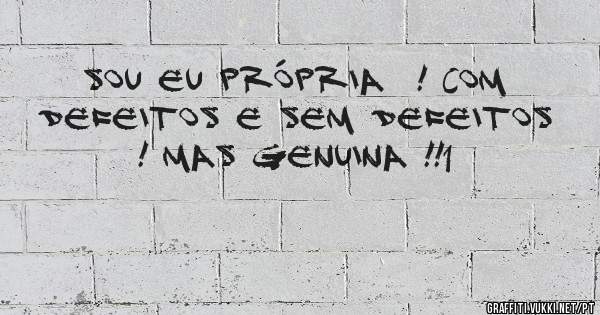 SOU EU PRÓPRIA ! COM
DEFEITOS E SEM DEFEITOS
! MAS GENUINA !!1
GRAFFITI.VUKKI.NET/PT